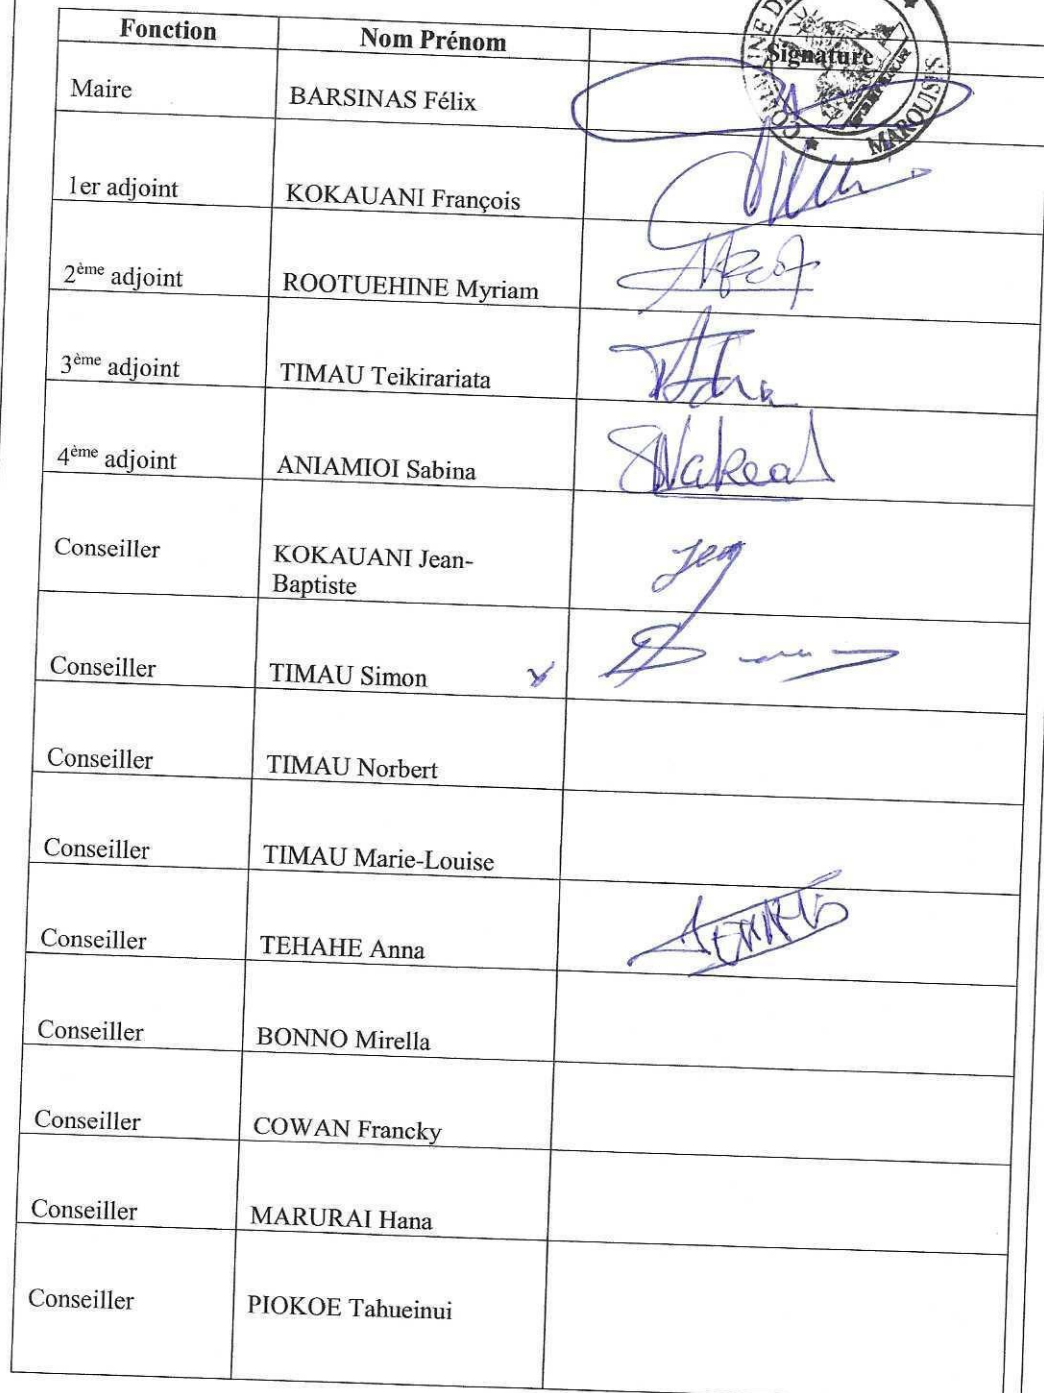 Fonction Nom Prénom Signature
COMMUNE D
MARQUISES
Maire BARSINAS Félix
1er adjoint KOKAUANI François
2ème adjoint ROOTUEHINE Myriam
3ème adjoint TIMAU Teikirariata
4ème adjoint ANIAMIOI Sabina
Conseiller KOKAUANI Jean-
Baptiste
Conseiller TIMAU Simon
Conseiller TIMAU Norbert
Conseiller TIMAU Marie-Louise
Conseiller TEHAHE Anna
Conseiller BONNO Mirella
Conseiller COWAN Francky
Conseiller MARURAI Hana
Conseiller PIOKOE Tahueinui